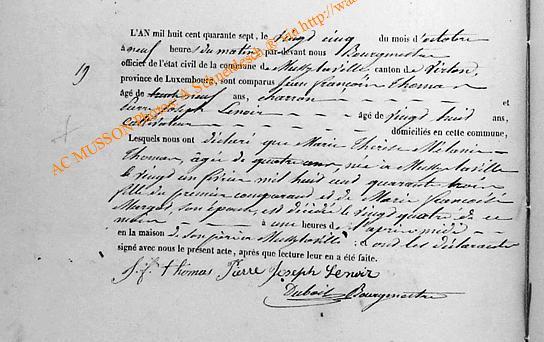 L'AN mil huit cent quarante sept, le vingt cinq du mois d'octobre
à neuf heures du matin, par-devant nous Bourgmestre
officier de l'état civil de la commune de Mussy-la-ville canton de Virton,
province de Luxembourg, sont comparus Jean François Thomas
19
âgé de trente neuf ans, charron et
Pierre Joseph Lenoir âgé de vingt huit ans,
cultivateur domiciliés en cette commune,
Lesquels nous ont déclaré que Marie Thérèse Mélanie
Thomas, âgée de quatre ans, née à Mussy-la-ville
le vingt un février mil huit cent quarante trois
fille du premier comparant et de Marie Françoise
Margot, son épouse, est décédée le vingt quatre de ce
mois à une heures de l'après midi
en la maison de son père à Mussy-la-ville; & ont les déclarants
signé avec nous le présent acte, après que lecture leur en a été faite.
J. f. thomas Pierre Joseph Lenoir
Duboit Bourgmestre
AC MUSSON Photos A Schneidesch